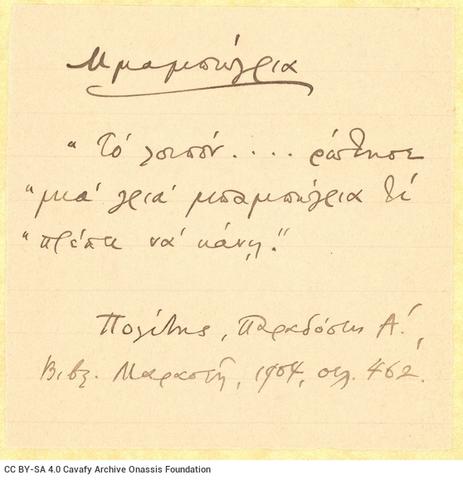 Μπαμπόγρια
"Τό λοιπόν.... ρώτησε
"μιά γριά μπαμπόγρια τί
"πρέπει νά κάνῃ."
Πολίτης, Παραδόσεις Α΄.,
Βιβλ. Μαρασλῆ, 1904, σελ. 462.
CC BY-SA 4.0 Cavafy Archive Onassis Foundation